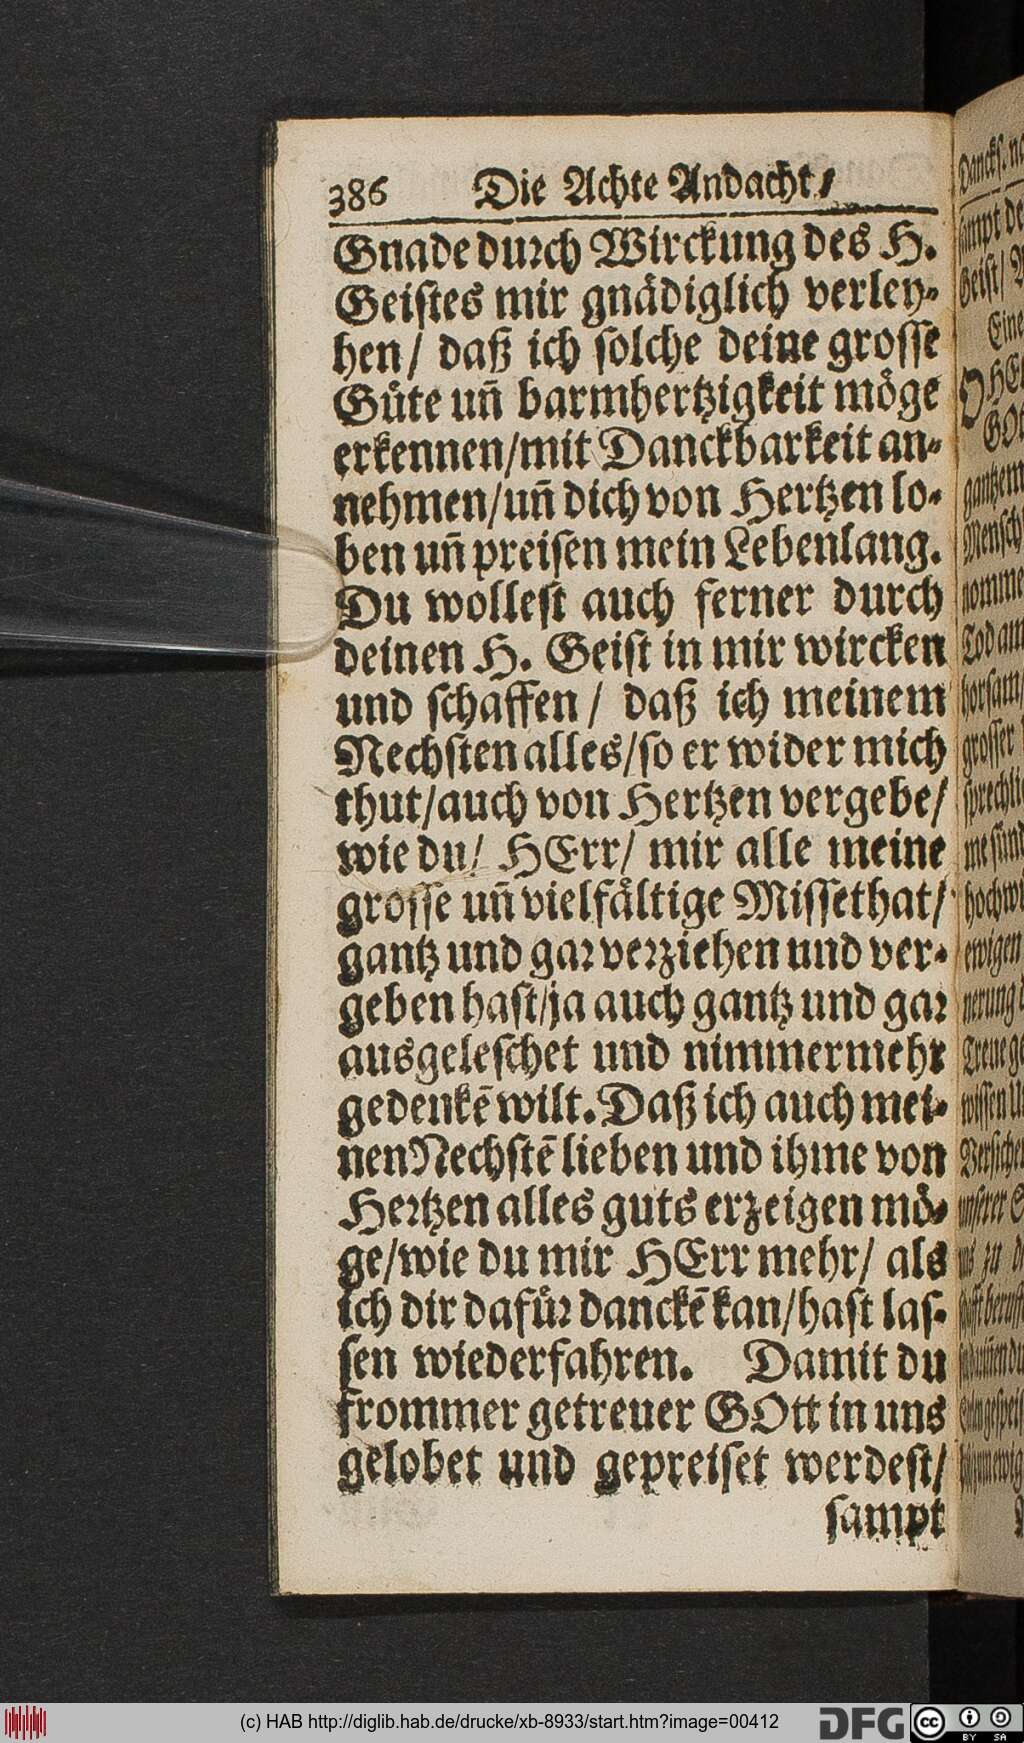 386 Die Achte Andacht/
Gnade durch Wirckung des H.
Geistes mir gnädiglich verley-
hen/ daß ich solche deine grosse
Güte uñ barmhertzigkeit möge
erkennen/mit Danckbarkeit an-
nehmen/uñ dich von Hertzen lo-
ben uñ preisen mein Lebenlang.
Du wollest auch ferner durch
deinen H. Geist in mir wircken
und schaffen / daß ich meinem
Nechsten alles/so er wider mich
thut/auch von Hertzen vergebe/
wie du/ HErr/ mir alle meine
grosse uñ vielfältige Missethat/
gantz und gar verziehen und ver-
geben hast/ja auch gantz und gar
ausgeleschet und nimmermehr
gedenkẽ wilt. Daß ich auch mei-
nen Nechstẽ lieben und ihme von
Hertzen alles guts erzeigen mö-
ge/wie du mir HErr mehr/ als
ich dir dafür danckẽ kan/hast las-
sen wiederfahren. Damit du
frommer getreuer GOtt in uns
gelobet und gepreiset werdest/
sampt
sampt
Geist/
Eine
gantzem
Mensch
nomme
Tod am
horsam/
grosser
sprechli
me sünd
hochwi
ewigen
nerung
Treue ge
wissen
Versicher
unserer
uns zu
(c) HAB http://diglib.hab.de/drucke/xb-8933/start.htm?image=00412
DFG
cc
BY SA